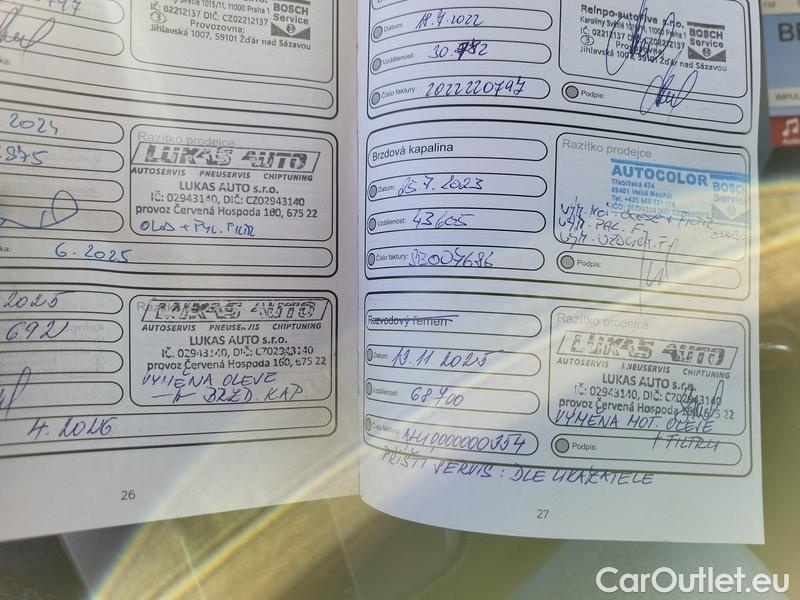 0797
Karolíny Světlé 1015/11, 11000 Praha 1
IČ: 02212137 DIČ: CZ02212137
Provozovna:
Jihlavská 1007, 59101 Žďár nad Sázavou
BOSCH
Service
2024
875
Razítko prodejce
LUKAS AUTO
AUTOSERVIS PNEUSERVIS CHIPTUNING
LUKAS AUTO s.r.o.
IČ: 02943140, DIČ: CZ02943140
provoz Červená Hospoda 160, 675 22
OLEJ + PYL. FILTR
6. 2025
2025
692
Razítko prodejce
LUKAS AUTO
AUTOSERVIS PNEUSERVIS CHIPTUNING
LUKAS AUTO s.r.o.
IČ: 02943140, DIČ: CZ02943140
provoz Červená Hospoda 160, 675 22
VÝMĚNA OLEJE
BRZD. KAP.
4. 2026
26
Datum: 18.7.2022
Vzdálenost:
Číslo faktury: 2022220797
Reinpo-autolive s.r.o.
Karolíny Světlé 1015/11, 11000 Praha 1
IČ: 02212137 DIČ: CZ02212137
Provozovna:
Jihlavská 1007, 59101 Žďár nad Sázavou
BOSCH
Service
Podpis:
Brzdová kapalina
Datum: 25.7.2023
Vzdálenost: 43605
Číslo faktury:
Razítko prodejce
AUTOCOLOR
Třebíčská 474
59401 Velké Meziříčí
BOSCH
Service
Podpis:
Rozvodový řemen
Datum: 13.11.2025
Vzdálenost: 68700
Číslo faktury:
Razítko prodejce
LUKAS AUTO
AUTOSERVIS PNEUSERVIS CHIPTUNING
LUKAS AUTO s.r.o.
IČ: 02943140, DIČ: CZ02943140
provoz Červená Hospoda 160, 675 22
VÝMĚNA MOT. OLEJE
+ FILTRU
Podpis:
PŘÍŠTÍ SERVIS: DLE UKAZATELE
27
CarOutlet.eu